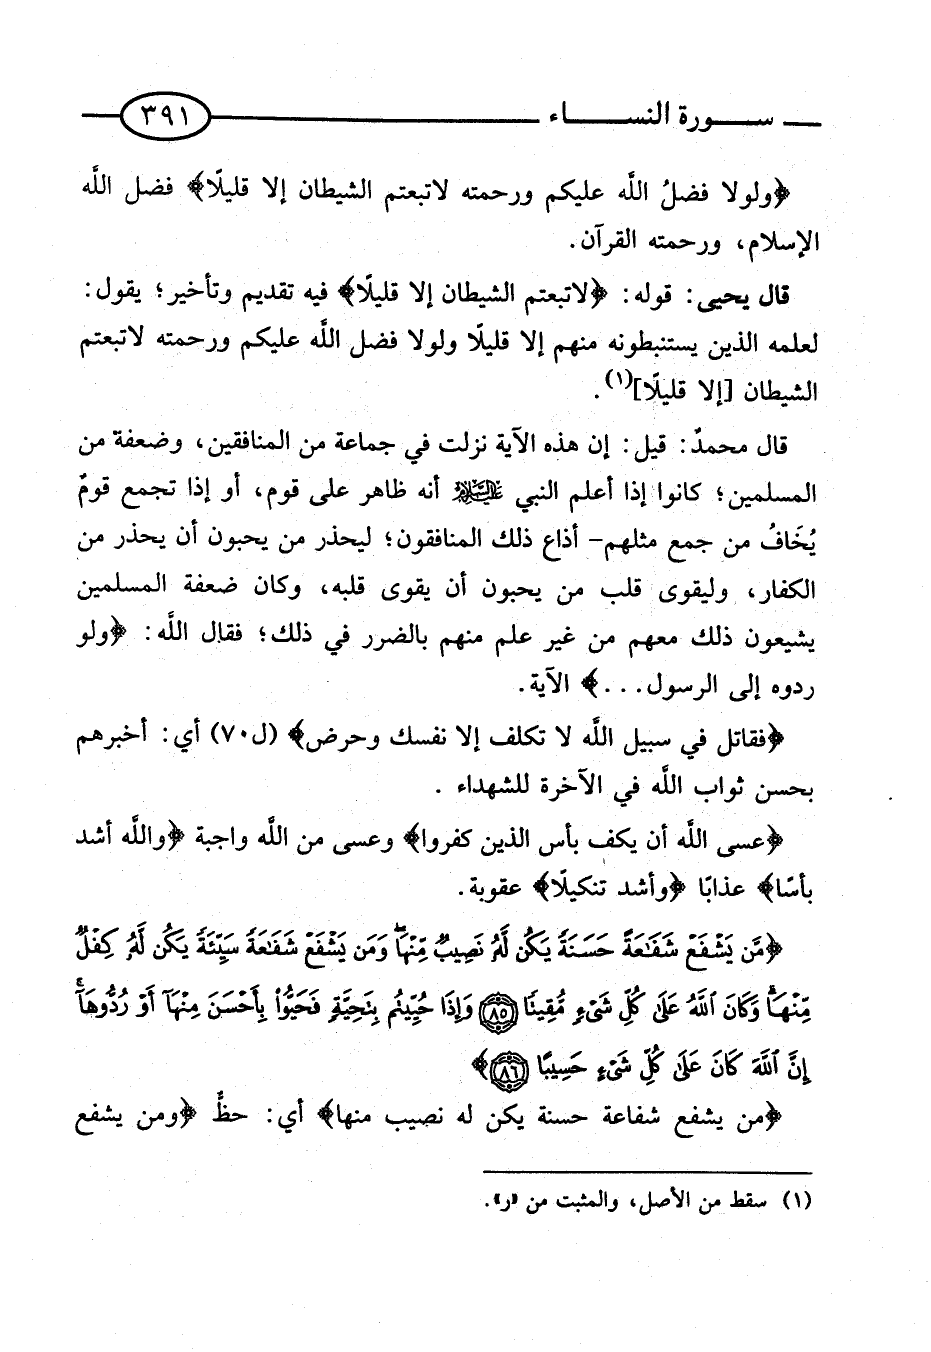 سورة النساء ٣٩١
﴿ولولا فضلُ اللَّه عليكم ورحمته لاتبعتم الشيطان إلا قليلًا﴾ فضل اللَّه
الإسلام، ورحمته القرآن.
قال يحيى: قوله: ﴿لاتبعتم الشيطان إلا قليلًا﴾ فيه تقديم وتأخير؛ يقول:
لعلمه الذين يستنبطونه منهم إلا قليلًا ولولا فضل اللَّه عليكم ورحمته لاتبعتم
الشيطان [إلا قليلًا](١).
قال محمدٌ: قيل: إن هذه الآية نزلت في جماعة من المنافقين، وضعفة من
المسلمين؛ كانوا إذا أعلم النبي عليه السلام أنه ظاهر على قوم، أو إذا تجمع قومٌ
يُخَافُ من جمع مثلهم- أذاع ذلك المنافقون؛ ليحذر من يحبون أن يحذر من
الكفار، وليقوى قلب من يحبون أن يقوى قلبه، وكان ضعفة المسلمين
يشيعون ذلك معهم من غير علم منهم بالضرر في ذلك؛ فقال اللَّه: ﴿ولو
ردوه إلى الرسول...﴾ الآية.
﴿فقاتل في سبيل اللَّه لا تكلف إلا نفسك وحرض﴾ (ل٧٠) أي: أخبرهم
بحسن ثواب اللَّه في الآخرة للشهداء .
﴿عسى اللَّه أن يكف بأس الذين كفروا﴾ وعسى من اللَّه واجبة ﴿واللَّه أشد
بأسًا﴾ عذابًا ﴿وأشد تنكيلًا﴾ عقوبة.
﴿مَّن يَشْفَعْ شَفَٰعَةً حَسَنَةً يَكُن لَّهُۥ نَصِيبٌ مِّنْهَا ۖ وَمَن يَشْفَعْ شَفَٰعَةً سَيِّئَةً يَكُن لَّهُۥ كِفْلٌ
مِّنْهَا ۗ وَكَانَ ٱللَّهُ عَلَىٰ كُلِّ شَىْءٍ مُّقِيتًا ٨٥ وَإِذَا حُيِّيتُم بِتَحِيَّةٍ فَحَيُّوا۟ بِأَحْسَنَ مِنْهَآ أَوْ رُدُّوهَآ ۗ
إِنَّ ٱللَّهَ كَانَ عَلَىٰ كُلِّ شَىْءٍ حَسِيبًا ٨٦﴾
﴿من يشفع شفاعة حسنة يكن له نصيب منها﴾ أي: حظٌّ ﴿ومن يشفع
(١) سقط من الأصل، والمثبت من «ر».